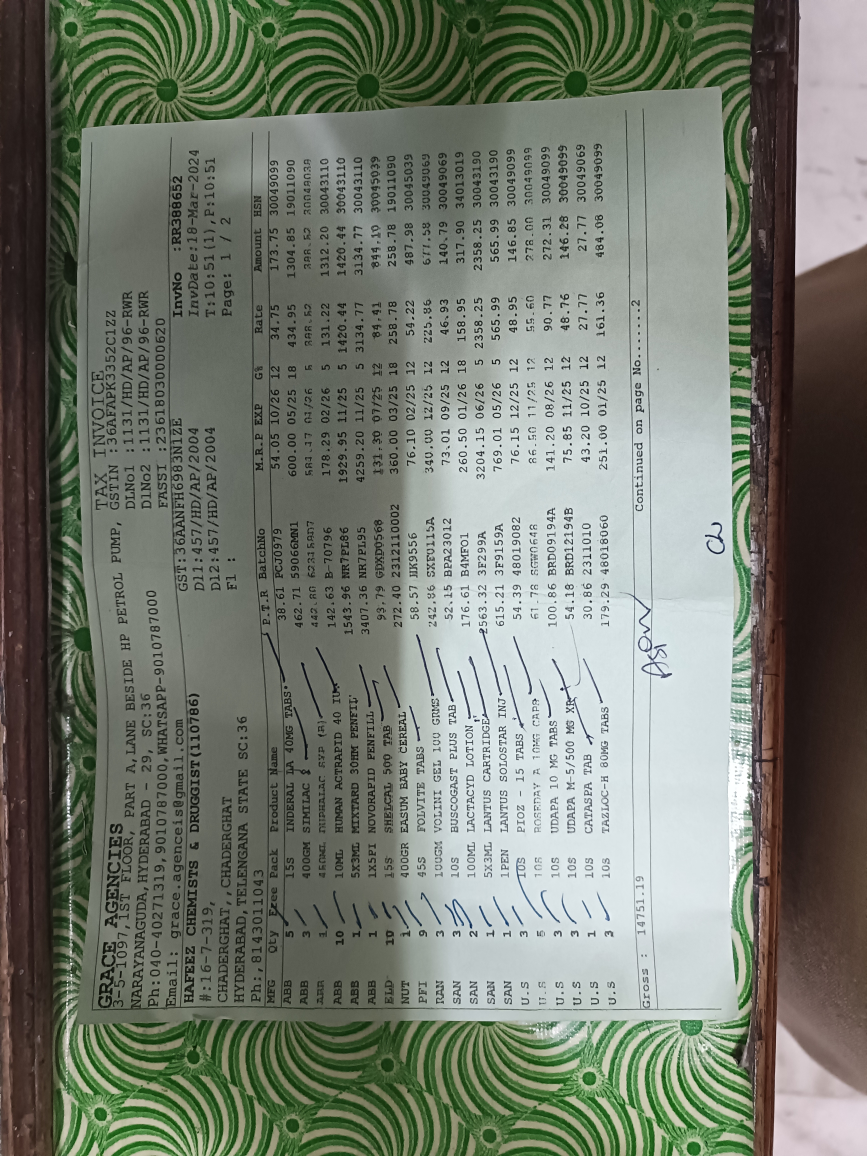 GRACE AGENCIES TAX INVOICE
3-5-1097,1ST FLOOR, PART A,LANE BESIDE HP PETROL PUMP, GSTIN :36AFAPK3352C1ZZ
NARAYANAGUDA,HYDERABAD - 29, SC:36 DLNo1 :1131/HD/AP/96-RWR
Ph:040-40271319,9010787000,WHATSAPP-9010787000 DlNo2 :1131/HD/AP/96-RWR
Email: grace.agenceis@gmail.com FASSI :23618030000620
HAFEEZ CHEMISTS & DRUGGIST(110786) GST:36AANFH6983N1ZE InvNo :RR388652
#:16-7-319, Dl1:457/HD/AP/2004 InvDate:18-Mar-2024
CHADERGHAT,,CHADERGHAT Dl2:457/HD/AP/2004 T:10:51(1),P:10:51
HYDERABAD,TELENGANA STATE SC:36 Fl : Page: 1 / 2
Ph:,8143011043
MFG Qty Free Pack Product Name P.T.R BatchNo M.R.P EXP G% Rate Amount HSN
ABB 5 15S INDERAL LA 40MG TABS 38.61 PCJ0979 54.05 10/26 12 34.75 173.75 30049099
ABB 3 400GM SIMILAC 462.71 59066MN1 600.00 05/25 18 434.95 1304.85 19011090
ABB 1 450ML DUPHALAC SYP (R) 5
ABB 10 10ML HUMAN ACTRAPID 40 IU 142.63 B-70796 178.29 02/26 5 131.22 1312.20 30043110
ABB 1 5X3ML MIXTARD 30HM PENFIL 1543.96 NR7PL86 1929.95 11/25 5 1420.44 1420.44 30043110
ABB 1 1X5PI NOVORAPID PENFILL 3407.36 NR7PL95 4259.20 11/25 5 3134.77 3134.77 30043110
ELD 10 15S SHELCAL 500 TAB 93.79 GDXD0568 131.30 07/25 12 84.41 844.10 30045039
NUT 1 400GR EASUM BABY CEREAL 272.40 2312110002 360.00 03/25 18 258.78 258.78 19011090
PFI 9 45S FOLVITE TABS 58.57 HK9556 76.10 02/25 12 54.22 487.98 30045039
RAN 3 100GM VOLINI GEL 100 GRMS 242.86 SXFU115A 340.00 12/25 12 225.86 677.58 30049069
SAN 3 10S BUSCOGAST PLUS TAB 52.15 BPA23012 73.01 09/25 12 46.93 140.79 30049069
SAN 2 100ML LACTACYD LOTION 176.61 B4MFO1 260.50 01/26 18 158.95 317.90 34013019
SAN 1 5X3ML LANTUS CARTRIDGE 2563.32 3F299A 3204.15 06/26 5 2358.25 2358.25 30043190
SAN 1 1PEN LANTUS SOLOSTAR INJ 615.21 3F9159A 769.01 05/26 5 565.99 565.99 30043190
U.S 3 10S PIOZ - 15 TABS 54.39 48019082 76.15 12/25 12 48.95 146.85 30049099
U.S 5 10S ROSEDAY A 10MG CAPS 61.78 SGW0648 86.50 11/25 12 55.60 278.00 30049099
U.S 3 10S UDAPA 10 MG TABS 100.86 BRD09194A 141.20 08/26 12 90.77 272.31 30049099
U.S 3 10S UDAPA M-5/500 MG XR 54.18 BRD12194B 75.85 11/25 12 48.76 146.28 30049099
U.S 1 10S CATASPA TAB 30.86 2311010 43.20 10/25 12 27.77 27.77 30049069
U.S 3 10S TAZLOC-H 80MG TABS 179.29 48018060 251.00 01/25 12 161.36 484.08 30049099
Gross : 14751.19 Continued on page No.......2